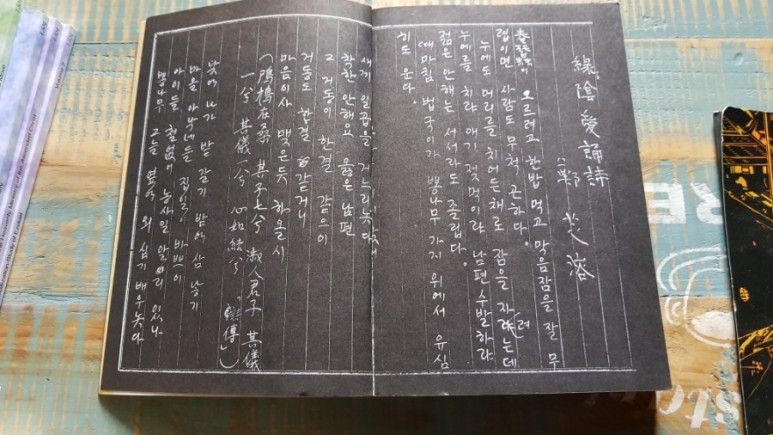 綠陰愛誦詩
鄭 芝溶
오르려고 한밥 먹고 막음잠을 잘 무
렵이면 사람도 무척 곤하다.
누에도 머리를 치어든채로 잠을 자려는데
누에를 치랴 애기 젖먹이랴 남편 수발하랴
젊은 안해는 서서라도 졸립다.
때마침 법국이가 뽕나무 가지 위에서 유심
히도 운다.
새끼 일곱을 거느리놋다
착한 안해요 옳은 남편
그 거동이 한결 같으이
거동도 한결 같거니
마음이사 맺은듯 하올시
(鳲鳩在桑 其子七兮 淑人君子 其儀
一兮 其儀一兮 心如結兮 「詩傳」)
낮에 나가 밭 갈기 밤에 삼 낳기
마을 아낙네들 집일에 바쁘이
아이들 철없이 농사일 알 리 있나
뽕나무 그늘 옆에 외 심기 배우놋다